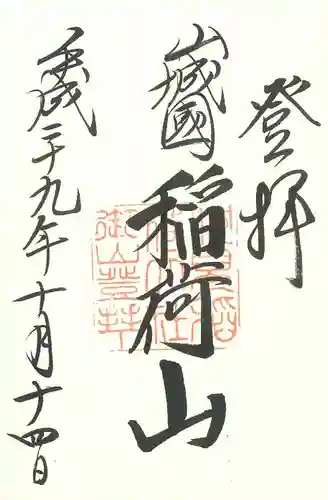 登拝
山城國
稲荷山
平成二十九年十月十四日